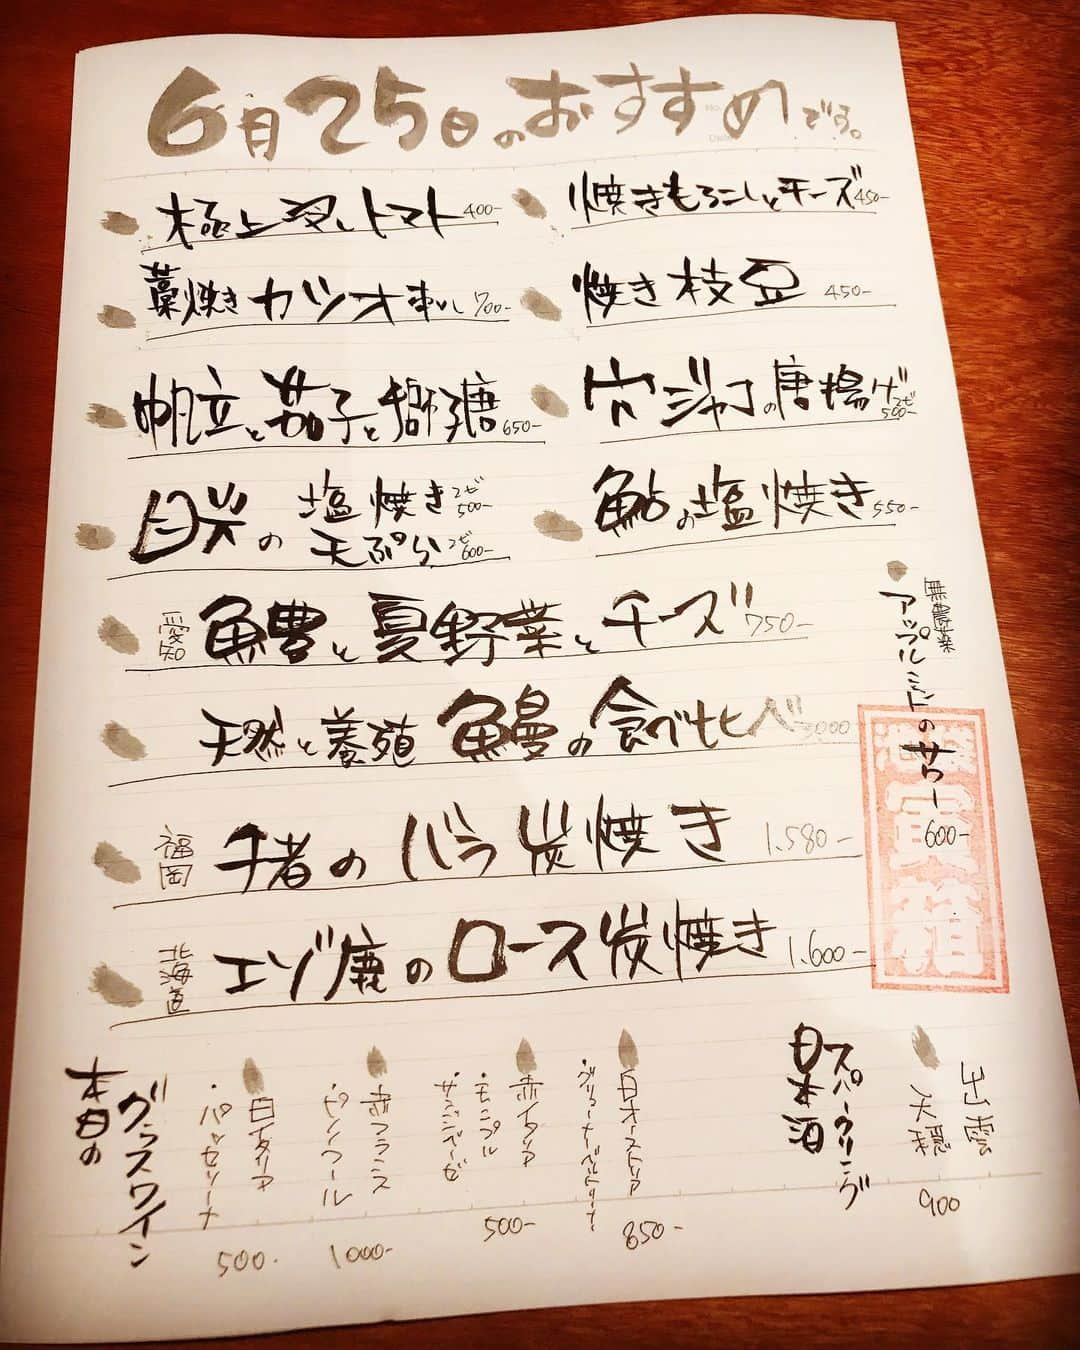 6月25日のおすすめです。
極上冷しトマト 400-
焼きもろこしとチーズ 450-
藁焼きカツオ刺し 700-
焼き枝豆 450-
帆立と茄子と 650-
穴ジャコの唐揚げ 2ピ 500-
目光の 塩焼き 2ピ 500-
天ぷら 2ピ 600-
鮎の塩焼き 550-
愛知 鱧と夏野菜とチーズ 750-
天然と養殖 鰻の食べ比べ 3000
福岡 千者のバラ炭焼き 1.580-
北海道 エゾ鹿のロース炭焼き 1.600-
無農薬
アップルミントのサワー 600-
寅箱
スパークリング
日本酒
出雲
天穏
900
白オーストリア
・グリューナーベルトリーナー
850-
赤イタリア
・モンテプル
サンジョベーゼ
500-
赤フランス
・ピノノワール
1000-
白イタリア
・パッセリーナ
500.
本日の
グラスワイン